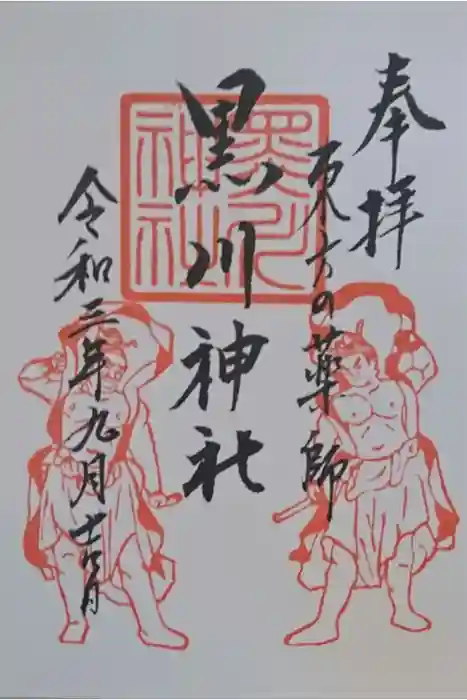 奉拝
東方の薬師
黒川神社
黒川
神社
令和三年九月吉日